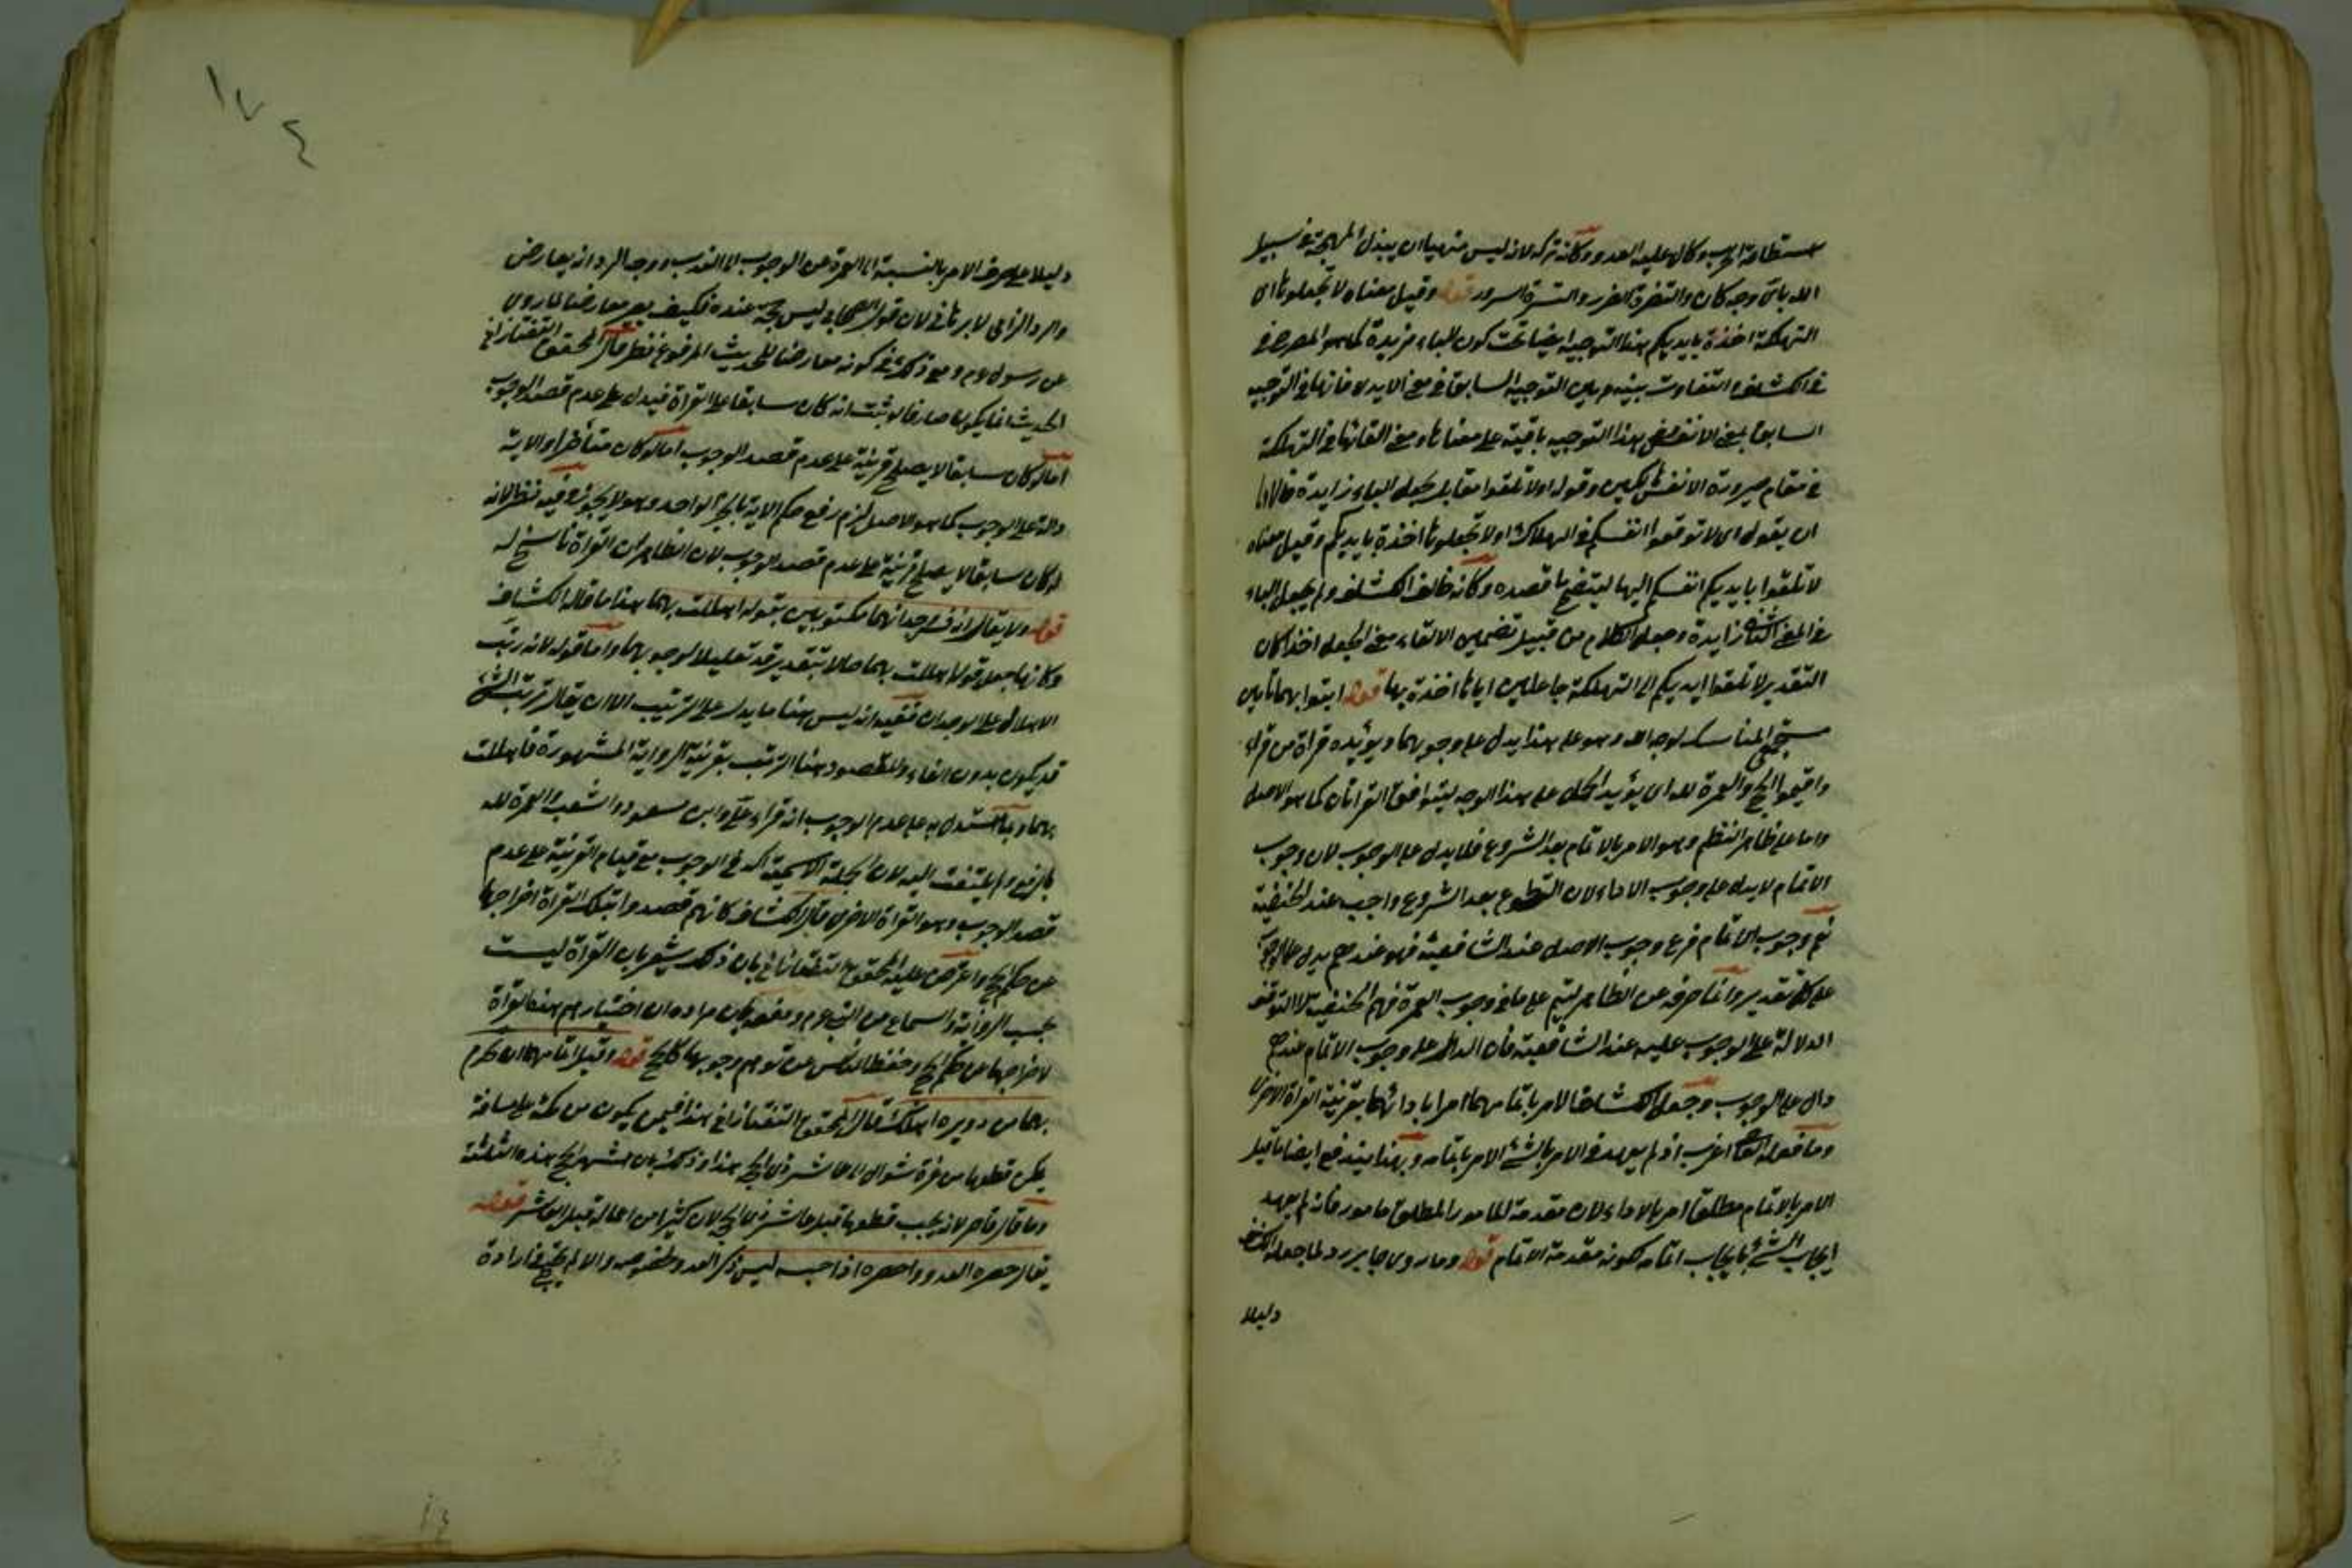 الله باى وجه كان والتضرة الضرر والتسرة السرور قوله وقيل معناه لا تجعلوها
التهلكة اخذة بايديكم هذا التوجيه ايضا تحت كون الباء مزيدة كما هو المصرح
فى الكشاف والتفاوت بينه وبين التوجيه السابق فى معنى الايدى فانها فى التوجيه
السابق بمعنى الانفس وفى هذا التوجيه باقية على معناها ومعنى القائها فى التهلكة
ان يقول اى لا توقعوا انفسكم فى الهلاك او لا تجعلوها اخذة بايديكم وقيل معناه
لا تلقوا بايديكم انفسكم اليها ليتضح ما قصده وكانه خالف الكشاف ولم يجعل الباء
فى المعنى الثانى زايدة وجعل الكلام من قبيل تضمين الالقاء معنى الجعل اخذا كان
التقدير لا تلقوا ايديكم الى التهلكة جاعلين اياها اخذة بها قوله ايتوا بهما تامين
مستجمعى المناسك لوجه الله وهو على هذا يدل على وجوبهما ويؤيده قراة من قرأ
واقيموا الحج والعمرة لله اى يؤيد الحمل على هذا الوجه ليتوافق القراتان كما هو الاصل
واما على ظاهر النظم وهو الامر بالاتمام بعد الشروع فلا يدل على الوجوب لان وجوب
الاتمام لا يدل على وجوب الاداء لان التطوع بعد الشروع واجب عند الحنفية
نعم وجوب الاتمام فرع وجوب الاصل عند الشافعية فهو عندهم يدل على الوجوب
على كل تقدير وانما صرفه عن الظاهر ليتم على نافى وجوب العمرة
الدلالة على الوجوب عليه عند الشافعية فان الدال على وجوب الاتمام عندهم
دال على الوجوب وجعل الكشاف الامر باتمامهما امرا بادائهما بقرينة القراة الاخرى
وما فعله المص اغرب اذ لم يعهد فى الامر بالشئ الامر باتمامه وبهذا يندفع ايضا ما قيل
الامر بالاتمام مطلقا امر بالاداء لان مقدمة المامور المطلق مامور فانه لم يعهد
ايجاب الشئ بايجاب اتمامه لكونه مقدمة الاتمام قوله وما روى جابر رد لما جعله الكشاف
دليلا
١٧٤
دليلا على صرف الامر بالنسبة الى العمرة عن الوجوب الى الندب ووجه الرد انه يعارض
والرد الزامى لا برهانى لان قول الصحابى ليس بحجة عنده فكيف يعد معارضا لما روى
عن رسول وم ومع ذلك ففى كونه معارضا للحديث المرفوع نظر قال المحقق التفتازانى
الحديث انما يكون صارفا لو ثبت انه كان سابقا على القراة فيدل على عدم قصد الوجوب
اما لو كان سابقا لا يصلح قرينة على عدم قصد الوجوب اما لو كان متأخرا والاية
دالة على الوجوب كما هو الاصل لزم رفع حكم الاية بالخبر الواحد وهو لا يجوز وفيه نظر لانه
لو كان سابقا لا يصلح قرينة على عدم قصد الوجوب لان الظاهر ان القراة ناسخ له
قوله ولا يقال انه فسر وجدانهما مكتوبين بقوله اهللت بهما هذا ما قاله الكشاف
وكانهما جعلا قوله اهللت بهما حالا بتقدير قد تعليلا لوجوبهما واما قوله لانه رتب
الاهلال على الوجدان ففيه انه ليس هنا ما يدل على الترتيب الا ان يقال ترتب الشئ
قد يكون بدون الفاء والمقصود هنا الترتب بقرينة الرواية المشهورة فاهللت
بهما ومما استدل به على عدم الوجوب انه قراء على وابن مسعود والشعبى والعمرة لله
بالرفع ولم يلتفت اليه لان الجملة الاسمية اكد فى الوجوب مع قيام القرينة على عدم
قصد الوجوب وهو القراة الاخرى قال الكشاف كانهم قصدوا بتلك القراة اخراجها
عن حكم الحج واعترض عليه المحقق التفتازانى بان ذلك يشعر بان القراة ليست
بحسب الرواية والسماع من النبى عم ودفعه بان مراده ان اختيارهم هذه القراة
لاخراجها عن حكم الحج وحفظ الناس عن توهم وجوبها كالحج قوله وقيل اتمامهما ان تحرم
بهما من دويرة اهلك قال المحقق التفتازانى هذا فيمن يكون من مكة على مسافة
يمكن قطعها من غرة شوال الى عاشر ذى الحجة هذا وذلك بان اشهر الحج هذه الثلثة
وما قال قاصر لانه يجب قطعها قبل عاشر ذى الحجة لان كثيرا من اعماله قبل العاشر قوله
يقال حصره العدو واحصره اذا حبسه ليس ذكر العدو بخصوصه والا لم يصح ارادة